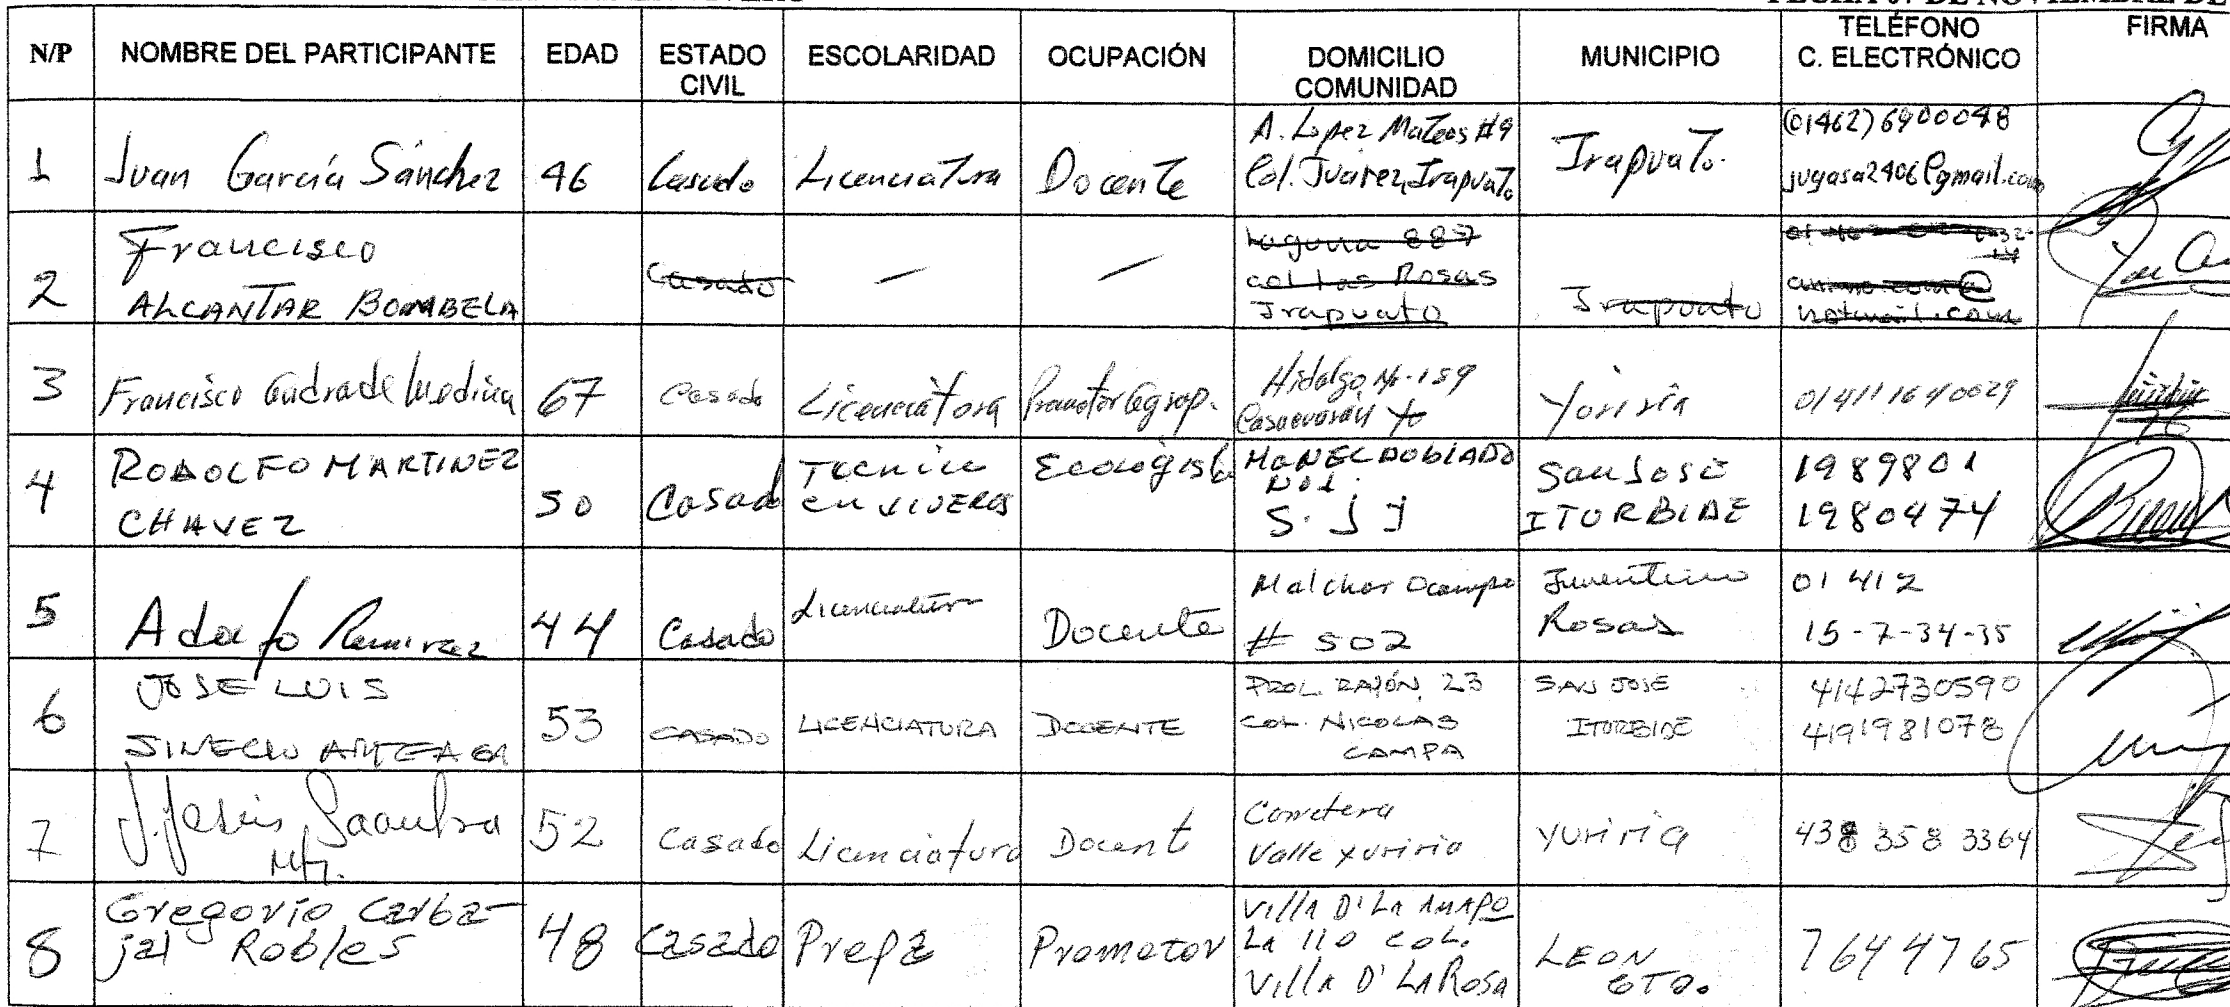 FECHA 07 DE NOVIEMBRE DE
N/P NOMBRE DEL PARTICIPANTE EDAD ESTADO CIVIL ESCOLARIDAD OCUPACIÓN DOMICILIO COMUNIDAD MUNICIPIO TELÉFONO C. ELECTRÓNICO FIRMA
1 Juan García Sánchez 46 Casado Licenciatura Docente
A. Lopez Mateos #9
Col. Juarez, Irapuato
Irapuato.
(01462)6900048
jugasa2406@gmail.com
2 Francisco
ALCANTAR BOMBELA
Casado — —
laguna 887
col las Rosas
Irapuato
Irapuato
hotmail.com
3 Francisco Andrade Medina 67 Casado Licenciatura Promotor Agrop.
Hidalgo No-159
Yuriria
01411 1640029
4 RODOLFO MARTINEZ
CHAVEZ
50 Casado
Tecnico
en VIVEROS
Ecologista
MANUEL DOBLADO
S. J I
San JOSE
ITURBIDE
1989801
1980474
5 Adolfo Ramirez 44 Casado Licenciatura Docente
Melchor Ocampo
# 502
Juventino
Rosas
01 412
15-7-34-35
6 JOSE LUIS
SINECIO ARTEAGA
53 CASADO LICENCIATURA DOCENTE
PROL. RAYÓN 23
COL. NICOLAS
CAMPA
SAN JOSE
ITURBIDE
4142730590
4191981078
7 J. Jesús Saavedra
52 Casado Licenciatura Docent
Carretera
Valle Yuriria
Yuriria
438 358 3364
8 Gregorio Carba-
jal Robles
48 Casado Prepa Promotor
Villa D' La AMAPO
La 110 COL.
Villa D' LA Rosa
LEON
GTO.
764 4765